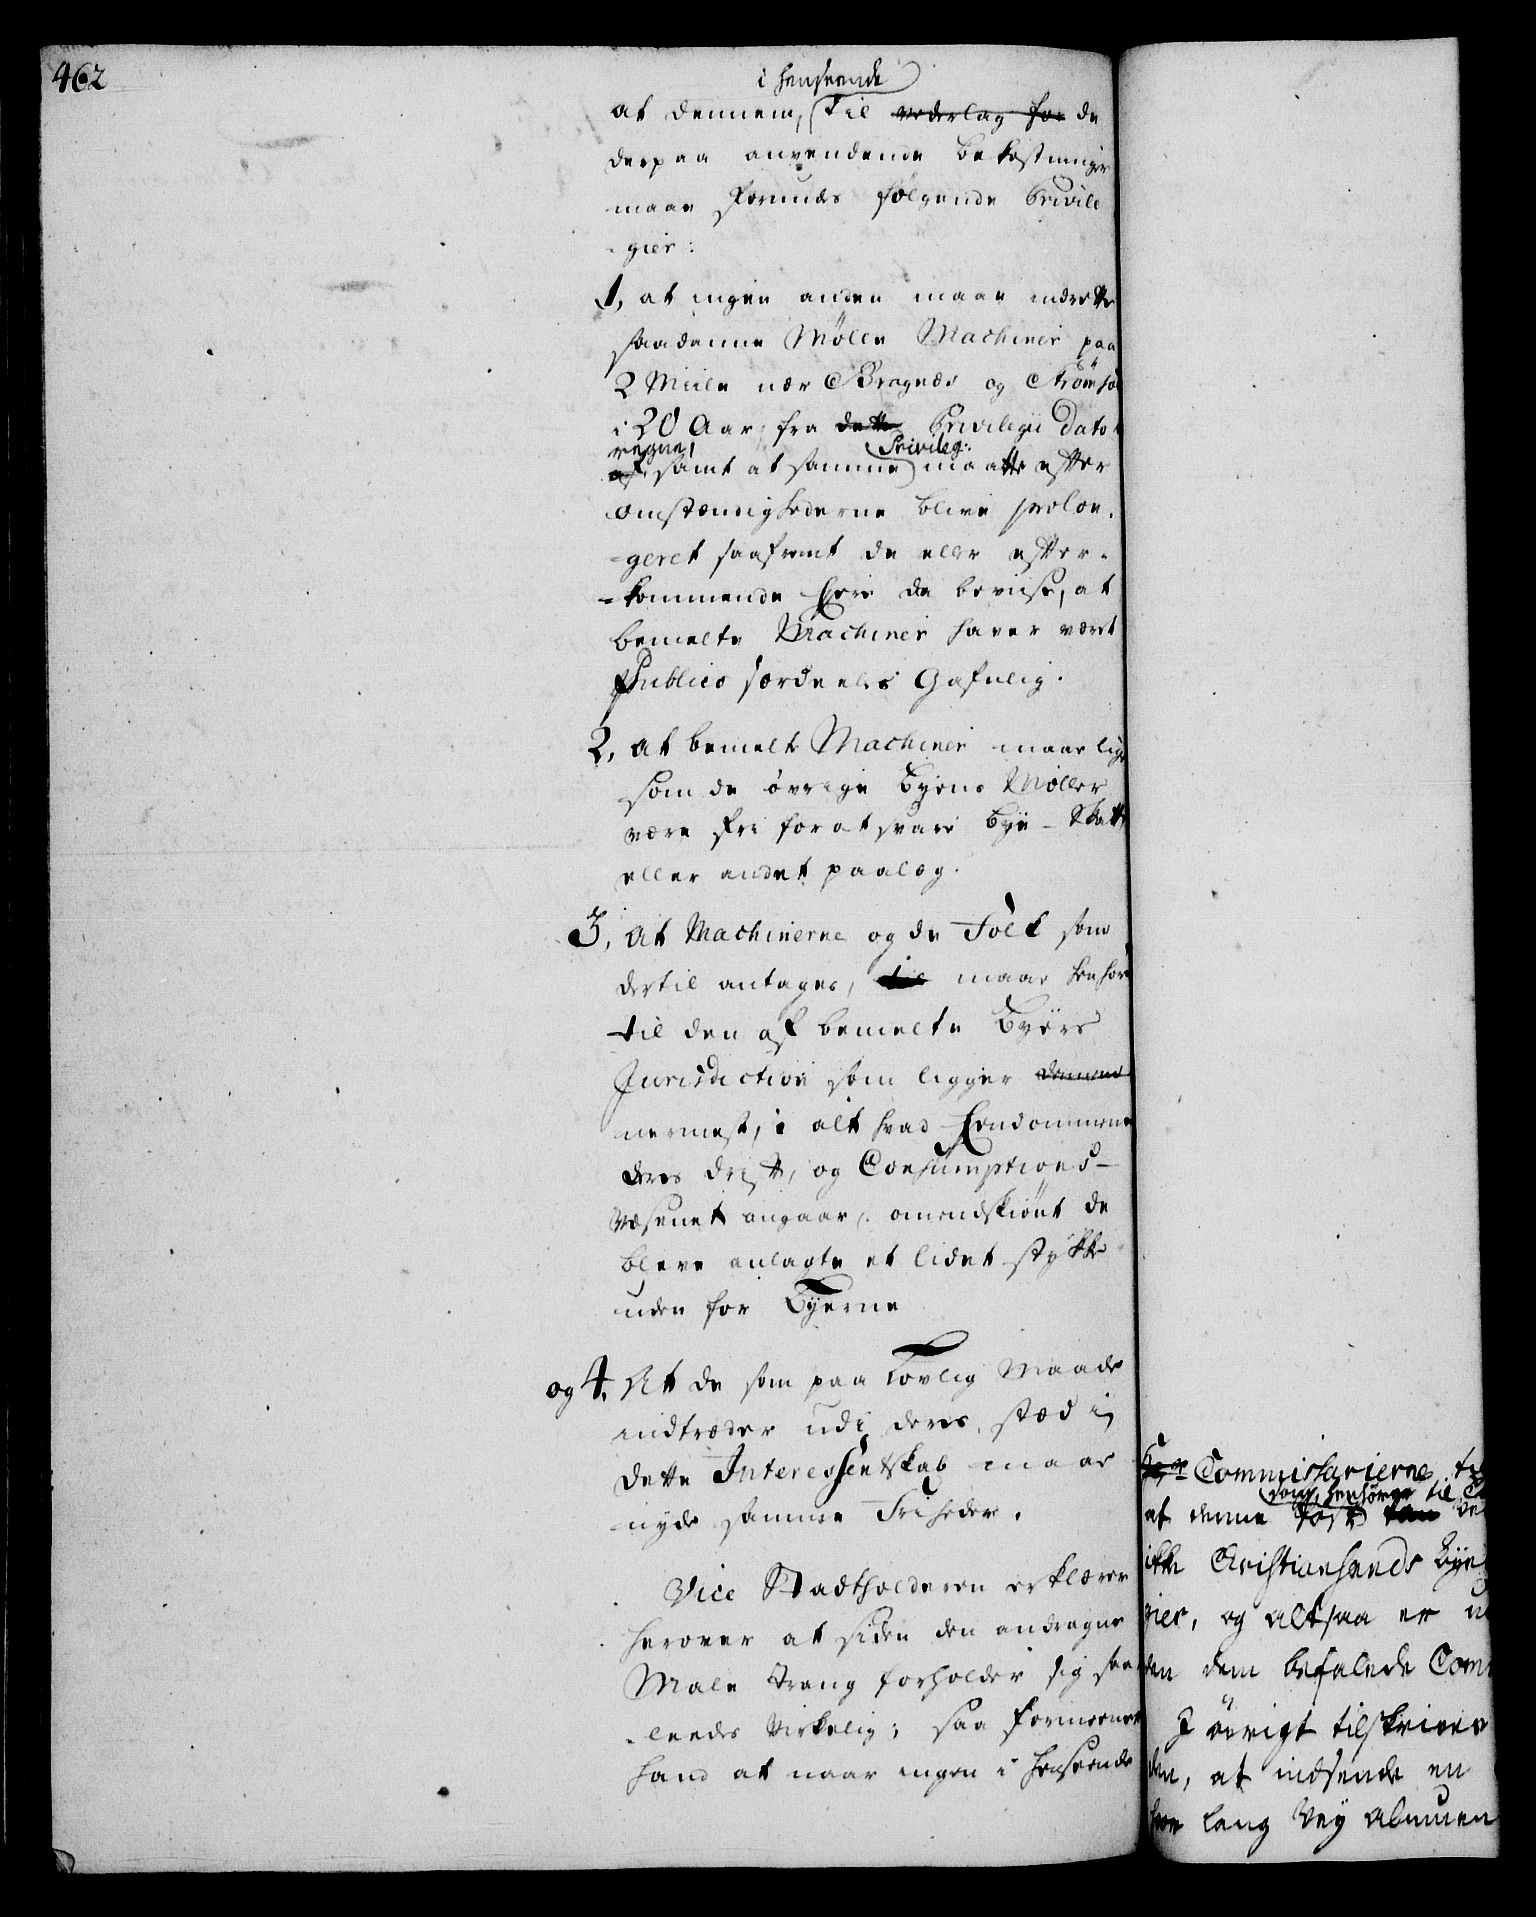 462
i henseende
at dennem, til vederlag for de
derpaa anvendende bekostninger
maae forundes følgende Privile
-gier:
1, at ingen anden maae indrette
saadanne Mølle Machiner paa
2 Miile nær Bragnæs og Strømsøe
i 20 Aar, fra dette Privilegii Dato
regne,
af, samt at samme Privileg: maatte efter
omstændighederne blive prolon-
-geret saafremt de eller efter-
-kommende Eere da beviise, at
bemelte Machiner haver været
Publico særdeeles Gafnlig.
2, at bemelte Machiner maae lige
som de øvrige Byens Møller
være frie for at svare Bye-Skatt
eller andet paalæg.
3, at Machinerne og de Folk som
dertil antages, til maae henhøre
til den af bemelte Byers
Jurisdiction som ligger dennem
nermest, i alt hvad Eendommene
deres drift, og Consumptions-
Væsenet angaar, omendskiønt de
bleve anlagte et lidet stykke
uden for Byerne
og 4. At de som paa Lovlig Maade
indtræder udi deres stæd i
dette Interessentskab maae
nyde samme Friheder.
Vice Stadtholderen erklærer
herover at siden den andragne
Male Trang forholder sig saa
-leedes Virkelig; saa formeener
hand at naar ingen i henseende
Commissarierne
som henhører til
at denne Post kan
ikke Christiansands Bye
gier, og altsaa er
den dem befalede Com
I øvrigt tilskrives
den, at indsende en
hvor lang Vey